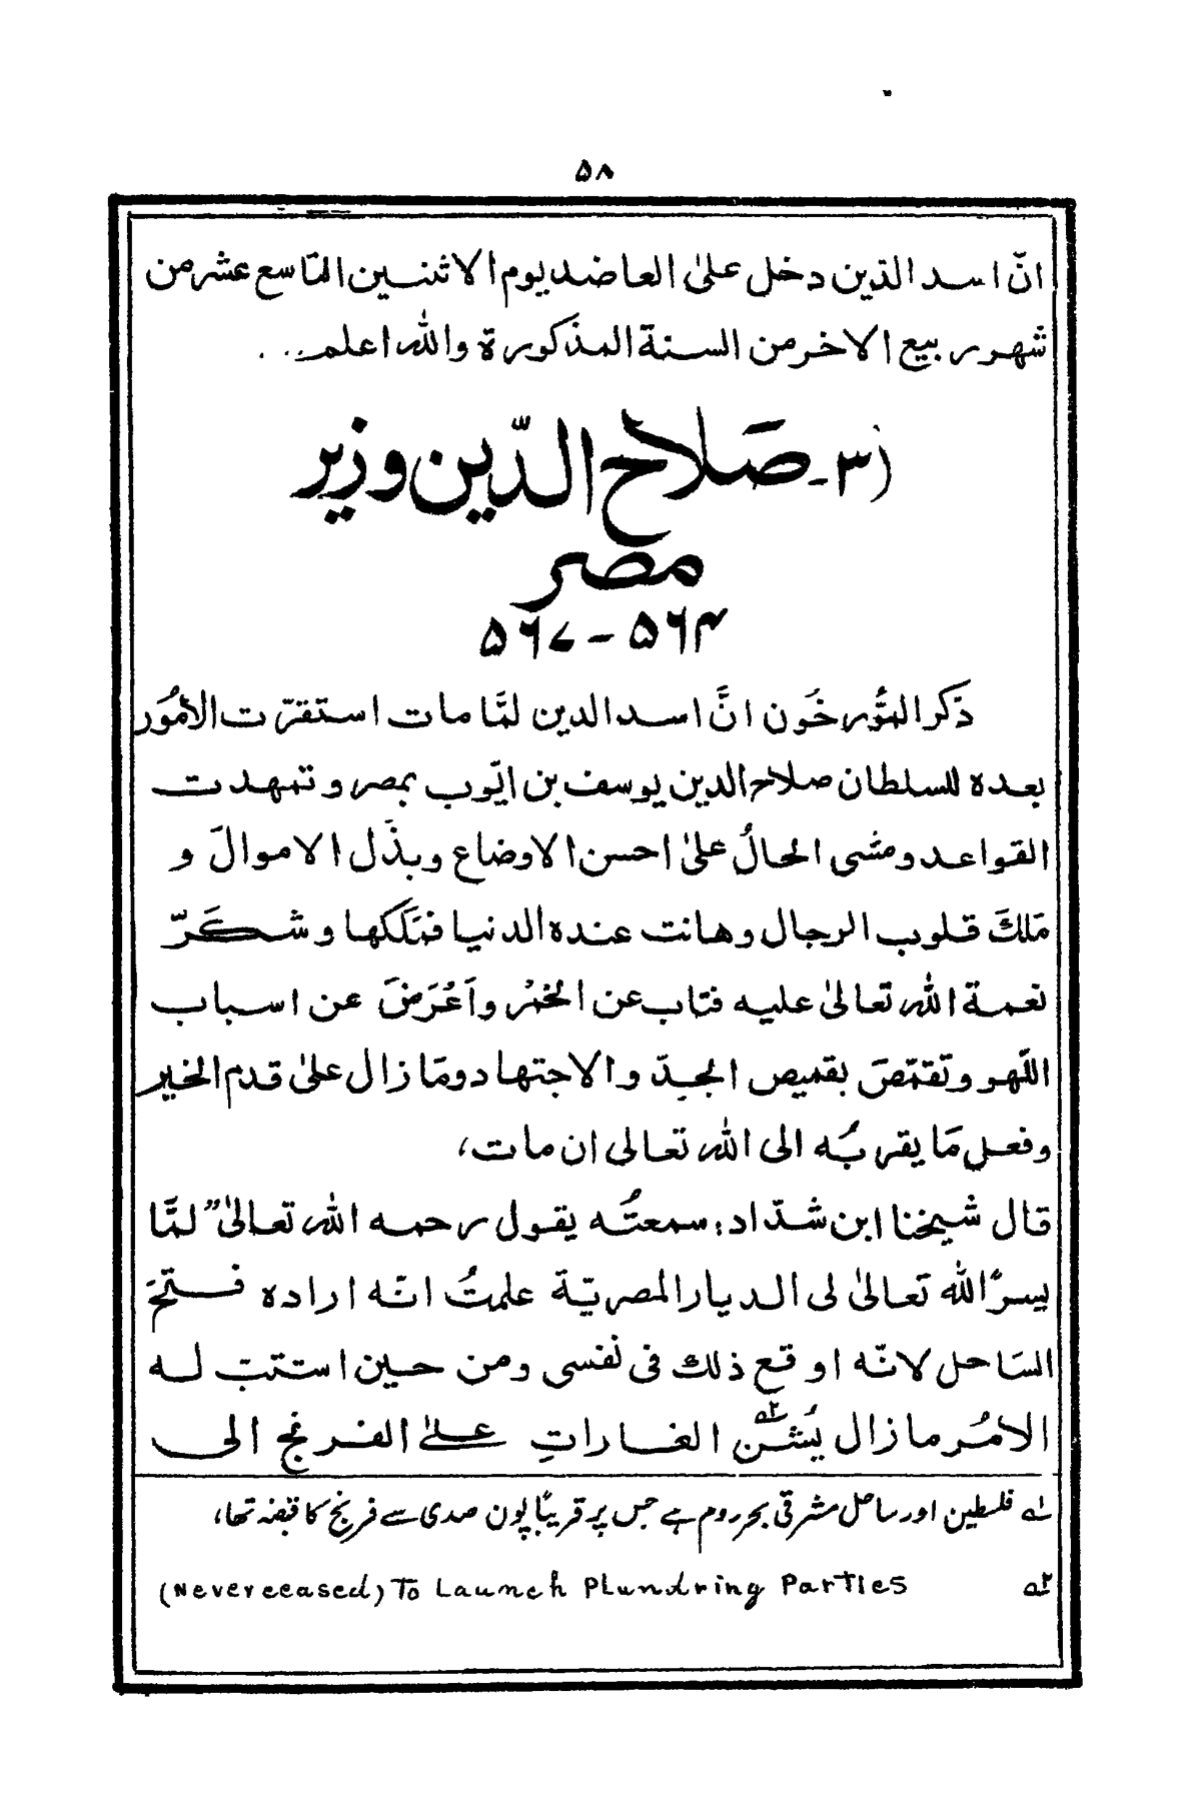 ۵۸
انّ اسد الدین دخل علیٰ العاضد یوم الاثنین التاسع عشر من
شھر ربیع الاخر من السنة المذکورة واللہ اعلم...
(۳- صَلاح الدّین وزیر
مصر
۵۶۴ - ۵۶۷
ذَکر المؤُرخُون انَّ اسد الدین لمَّا مات استقرّت الاُمُور
بعدہ للسلطان صلاح الدین یوسف بن ایّوب بمصر و تمھدت
القواعد و مشی الحالُ علیٰ احسن الاوضاع و بذَل الاموالَ و
مَلكَ قلوب الرجال وھانت عندہ الدنیا فمَلَکھا و شَکَرَ
نعمة اللہ تعالیٰ علیہ فتاب عن الخمُر واَعُرَضَ عن اسباب
اللّھو و تقمّصَ بقمیص الجِدّ والاجتھاد ومَا زال علیٰ قدم الخیر
و فعل مَا یقربُہ الی اللہ تعالی ان مات،
قال شیخنا ابن شدّاد: سمعتُہ یقول رحمہ اللہ تعالیٰ" لمَّا
یسرَّ اللہ تعالیٰ لی الدیار المصریّة علمتُ انّہ ارادہ فتحَ
السَاحل لانّہ اوقع ذلك فی نفسی ومن حین استتبّ لہ
الامُر مازال یُشنّ ۲؎ الغاراتِ علیٰ الفرنج الی
۱؎ فلسطین اور ساحل مشرقی بحر روم ہے جس پر قریباً پون صدی سے فرنج کا قبضہ تھا،
۲؎ (Never ceased) To Launch Plundring Parties